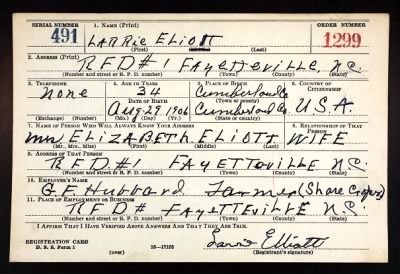 SERIAL NUMBER 1. NAME (Print) ORDER NUMBER
491 LARRIE ELIOTT 1299
(First) (Middle) (Last)
2. ADDRESS (Print)
RFD#1 FAYETTEVILLE, N.C.
(Number and street or R. F. D. number) (Town) (County) (State)
3. TELEPHONE 4. AGE IN YEARS 5. PLACE OF BIRTH 6. COUNTRY OF CITIZENSHIP
None 34 Cumberland Co
DATE OF BIRTH (Town or county)
Aug 29 1906 Cumberland Co. U.S.A.
(Exchange) (Number) (Mo.) (Day) (Yr.) (State or country)
7. NAME OF PERSON WHO WILL ALWAYS KNOW YOUR ADDRESS 8. RELATIONSHIP OF THAT PERSON
Mrs ELIZABETH ELIOTT WIFE
(Mr., Mrs., Miss) (First) (Middle) (Last)
9. ADDRESS OF THAT PERSON
RFD.#1 FAYETTEVILLE N.C.
(Number and street or R. F. D. number) (Town) (County) (State)
10. EMPLOYER'S NAME
G.F. Hubbard Farmer (Share Croper)
11. PLACE OF EMPLOYMENT OR BUSINESS
RFD# FAYETTEVILLE N.C.
(Number and street or R. F. D. number) (Town) (County) (State)
I AFFIRM THAT I HAVE VERIFIED ABOVE ANSWERS AND THAT THEY ARE TRUE.
REGISTRATION CARD
D. S. S. Form 1 (over) 16—17105 Elliott
(Registrant's signature)